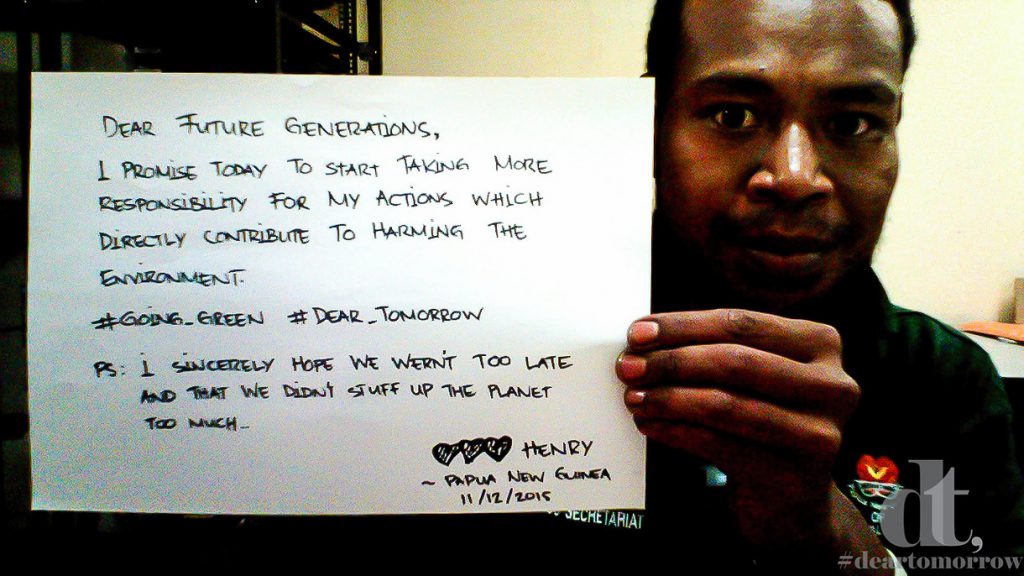 DEAR FUTURE GENERATIONS,
I PROMISE TODAY TO START TAKING MORE
RESPONSIBILITY FOR MY ACTIONS WHICH
DIRECTLY CONTRIBUTE TO HARMING THE
ENVIRONMENT.
#GOING_GREEN #DEAR_TOMORROW
PS: I SINCERELY HOPE WE WERN'T TOO LATE
AND THAT WE DIDN'T STUFF UP THE PLANET
TOO MUCH...
HENRY
~ PAPUA NEW GUINEA
11/12/2015
SECRETARIAT
dt,
#deartomorrow